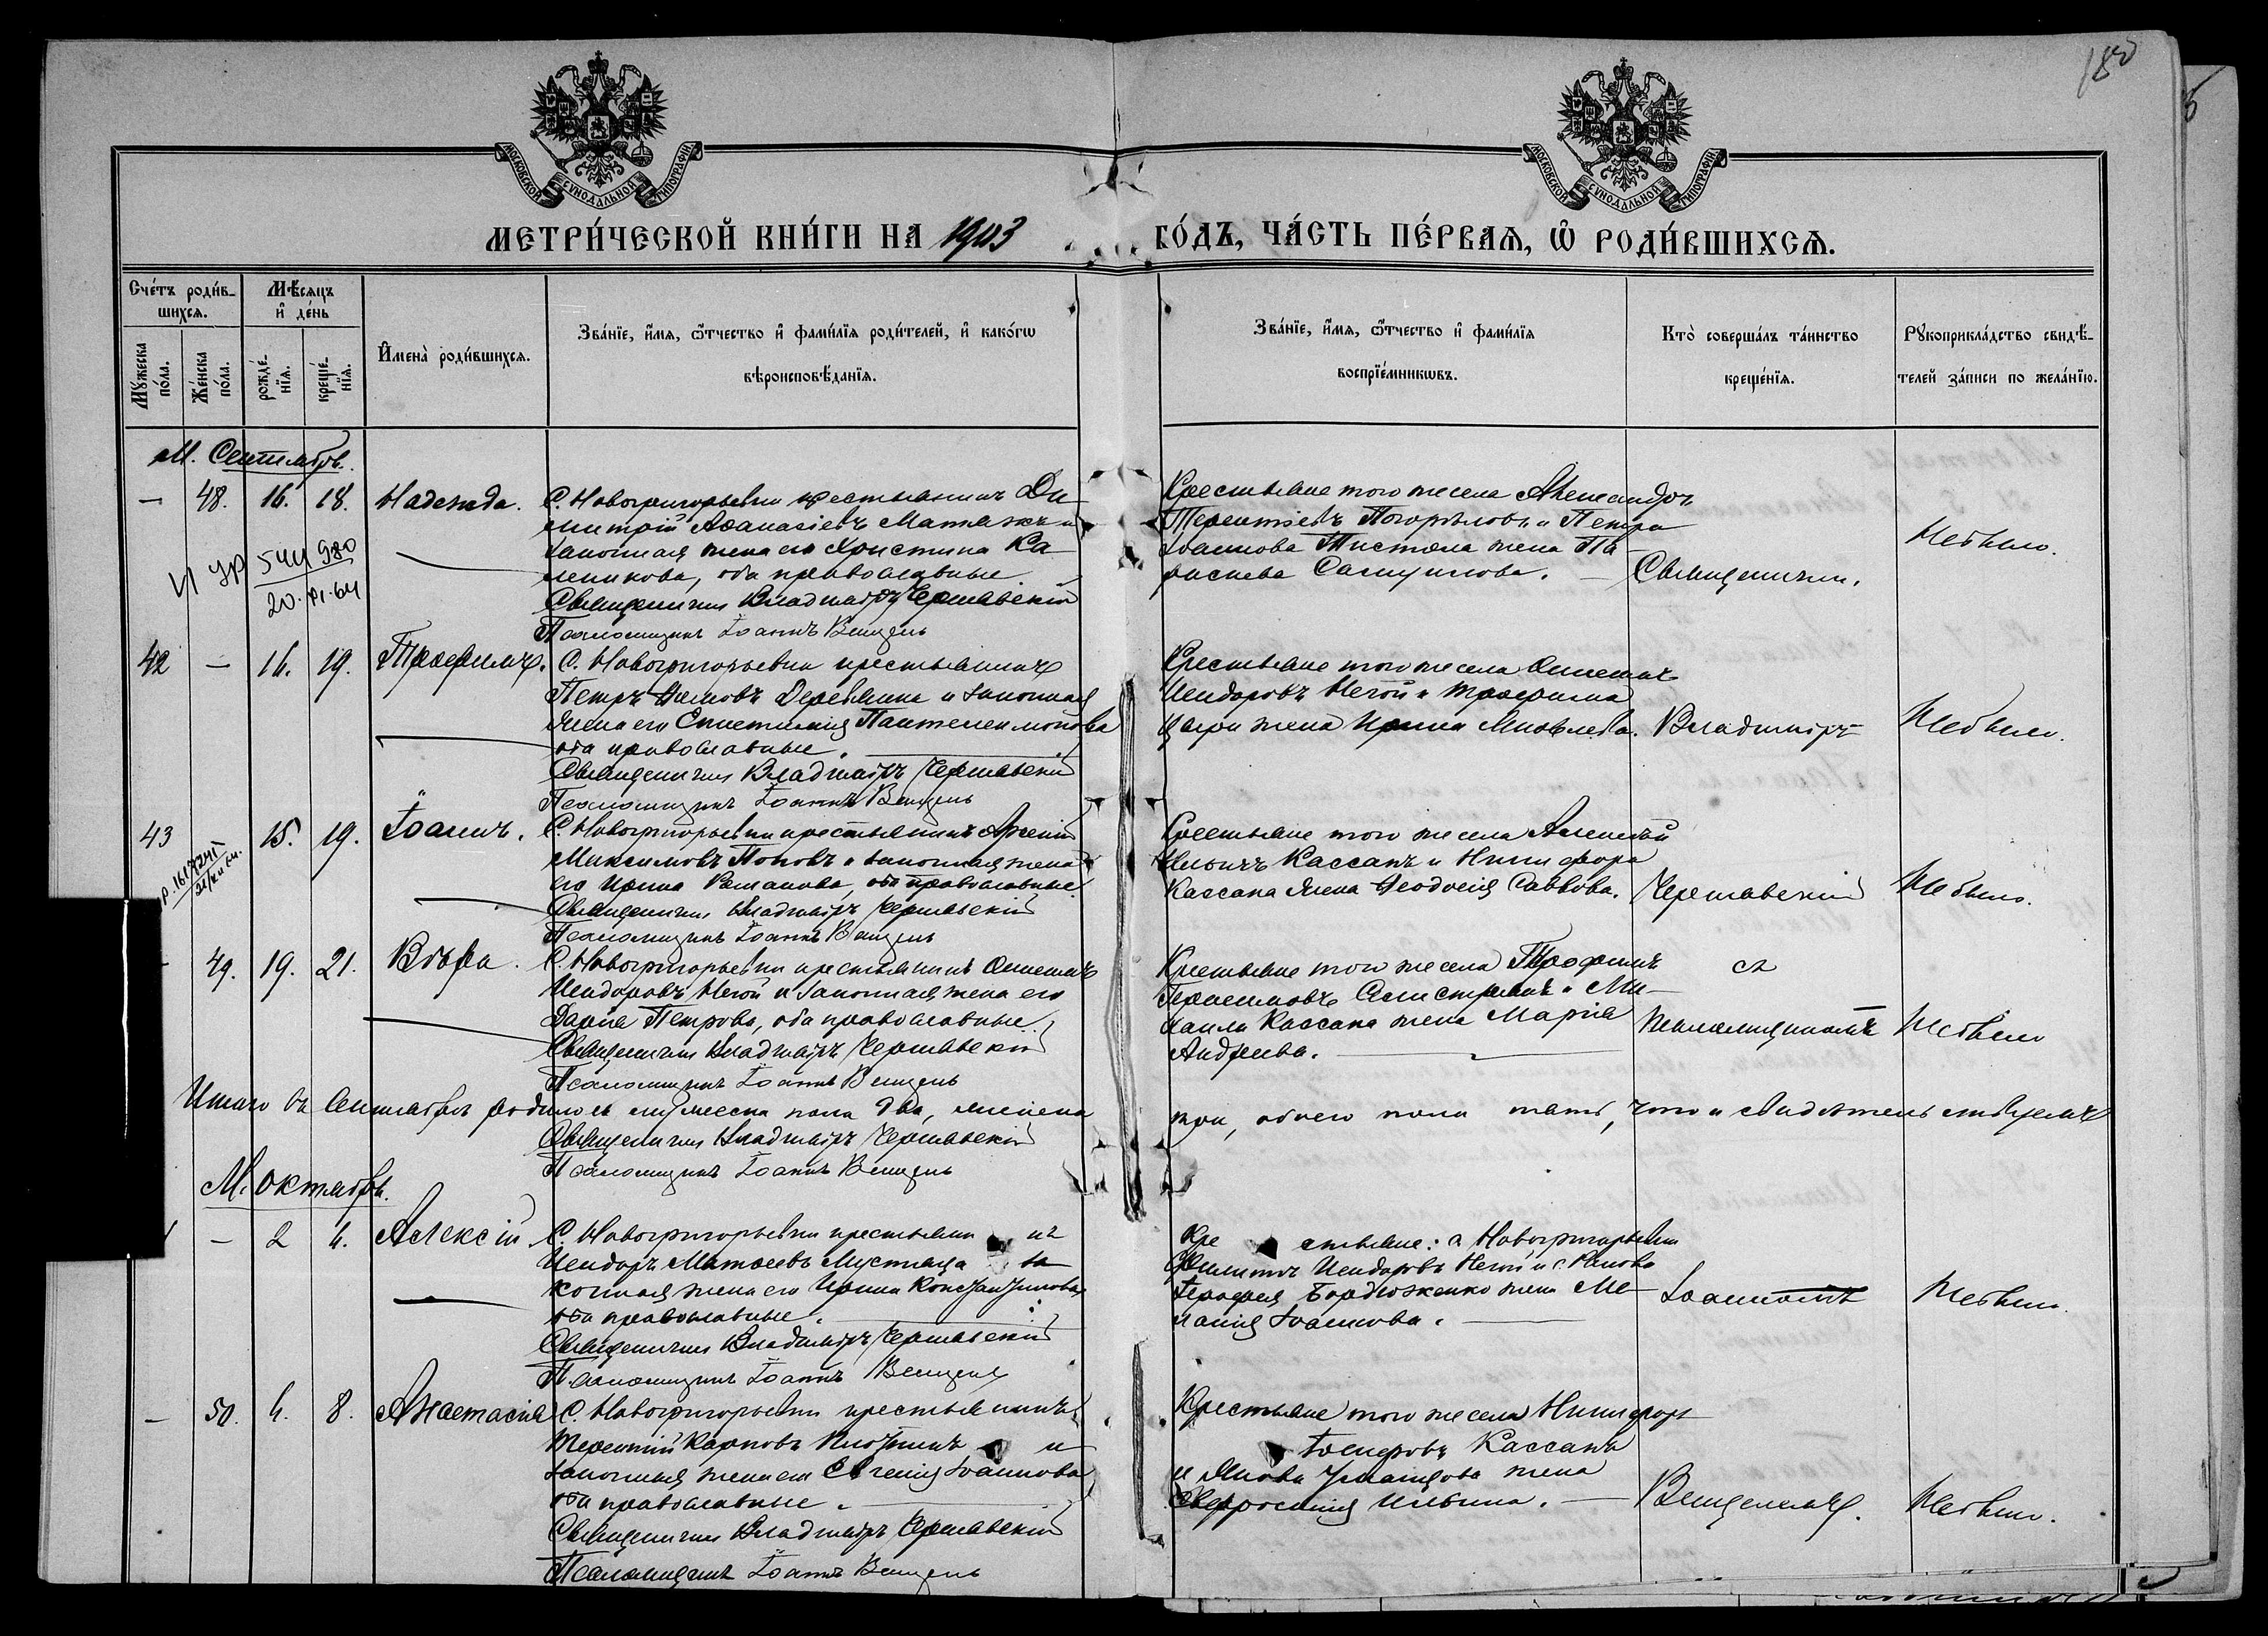 180
МОСКОВСКОЙ СѴНОДАЛЬНОЙ ТИПОГРАФІИ
МОСКОВСКОЙ СѴНОДАЛЬНОЙ ТИПОГРАФІИ
МЕТРИ́ЧЕСКОЙ КНИ́ГИ НА 1903 ГО́ДЪ, ЧА́СТЬ ПЕ́РВАѦ, Ѽ РОДИ́ВШИХСѦ.
Сче́тъ роди́в-
шихсѧ.
Мꙋжеска по́ла.
Же́нска по́ла.
Мѣ́сѧцъ и҆ де́нь
рожде́-
нїѧ.
креще́-
нїѧ.
И҆мена̀ роди́вшихсѧ.
Зва́нїе, и҆́мѧ, ѻ҆́тчество и҆ фами́лїѧ роди́телей, и҆ како́гѡ
вѣроисповѣ́данїѧ.
Зва́нїе, и҆́мѧ, ѻ҆́тчество и҆ фами́лїѧ
воспрїе́мникѡвъ.
Кто̀ соверша́лъ та́инство
креще́нїѧ.
Рꙋкоприкла́дство свидѣ́-
телей за́писи по жела́нїю.
М. Сентябрь.
— 48. 16. 18. Надежда.
С. Новогригорьевки крестьянинъ Ди-
митрій Аѳанасіевъ и
законная жена его Христина Ка-
ленникова, оба православные.
Священникъ Владиміръ Чернявскій
Псаломщикъ Іоаннъ Венцель
Крестьяне того же села Александръ
Терентіевъ Погорѣловъ и Петра
Іоаннова жена Па-
раскева
Священникъ
Не было.
544 980
20. VI. 64
42 — 16. 19. Трофимъ.
С. Новогригорьевки крестьянинъ
Петръ и законная
жена его Епистимія Пантелеимонова
оба православные.
Священникъ Владиміръ Чернявскій
Псаломщикъ Іоаннъ Венцель
Крестьяне того же села
Исидоровъ Негой и Трофима
жена Ирина Яковлева.
Владиміръ
Не было.
43 15. 19. Іоаннъ.
С. Новогригорьевки крестьянинъ Арсеній
Максимовъ Поповъ и законная жена
его Ирина Романова, оба православные.
Священникъ Владиміръ Чернявскій
Псаломщикъ Іоаннъ Венцель
Крестьяне того же села Алексѣй
Ильичъ Кассапъ и Никифора
Кассапа жена Ѳеодосія Саввова.
Чернявскій
Не было.
49. 19. 21. Вѣра.
С. Новогригорьевки крестьянинъ
Исидоровъ Негой и законная жена его
Дарія Петрова, оба православные.
Священникъ Владиміръ Чернявскій
Псаломщикъ Іоаннъ Венцель
Крестьяне того же села Трофимъ
и Ми-
хаила Кассапа жена Марія
Андреева.
съ
псаломщикомъ
Не было
Итого въ Сентябрѣ родилось мужеска пола два, женска три, обоего пола пять, что и свидѣтельствуемъ
Священникъ Владиміръ Чернявскій
Псаломщикъ Іоаннъ Венцель
М. Октябрь.
— 2 4. Алексій
С. Новогригорьевки крестьянинъ
Исидоръ Матѳеевъ Мустяца за-
конная жена его Ирина Константинова
оба православные.
Священникъ Владиміръ Чернявскій
Псаломщикъ Іоаннъ Венцель
Крестьяне: с. Новогригорьевки
Филиппъ Исидоровъ Негой и с.
Бардюженко жена Ме-
ланія Іоаннова.
Іоанномъ
Не было.
— 50. 4. 8. Анастасія
С. Новогригорьевки крестьянинъ
Терентій Карповъ и
законная жена его Евгенія Іоаннова
оба православные.
Священникъ Владиміръ Чернявскій
Псаломщикъ Іоаннъ Венцель
Крестьяне того же села Никифоръ
Іосифовъ Кассапъ
и Якова жена
Евфросинія Ильина.
Венцелемъ.
Не было.